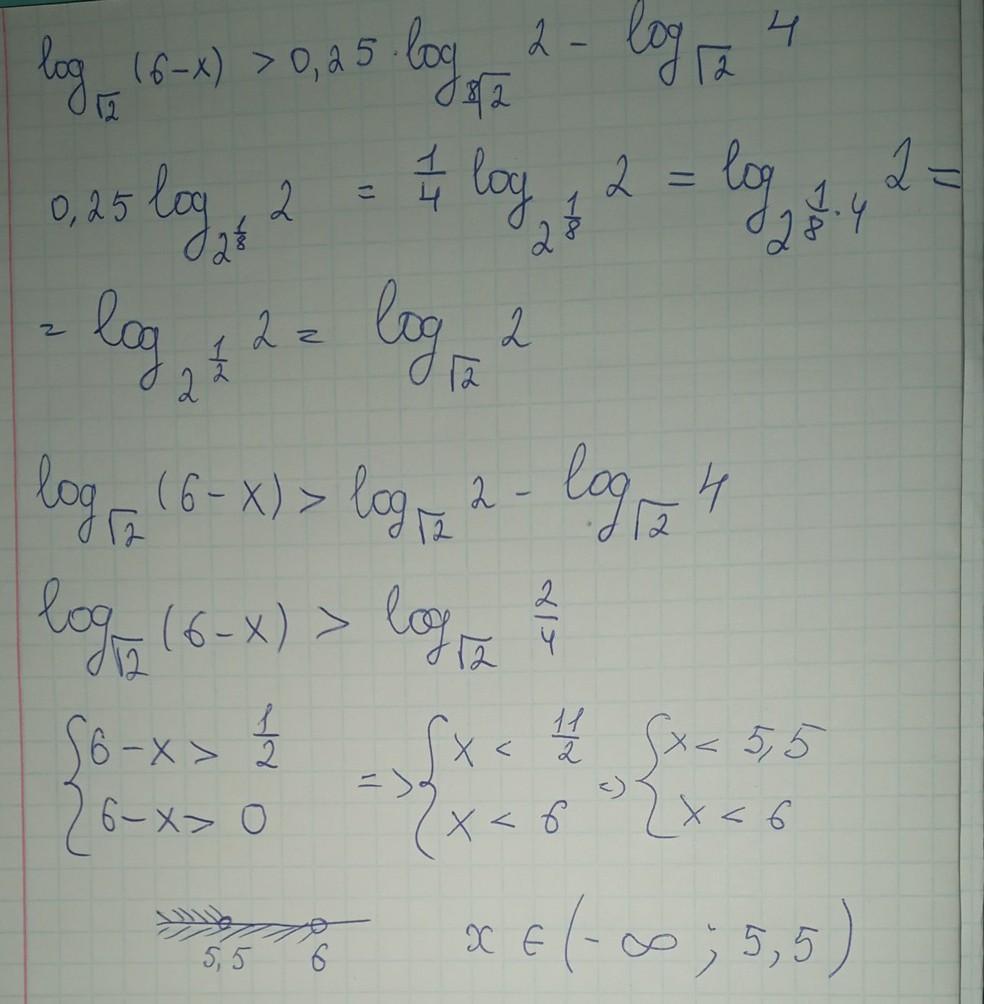 log_{√2} (6-x) > 0,25 · log_{⁸√2} 2 - log_{√2} 4
0,25 log_{2^{1/8}} 2 = 1/4 log_{2^{1/8}} 2 = log_{2^{1/8 · 4}} 2 =
= log_{2^{1/2}} 2 = log_{√2} 2
log_{√2} (6-x) > log_{√2} 2 - log_{√2} 4
log_{√2} (6-x) > log_{√2} 2/4
{ 6-x > 1/2 => { x < 11/2 => { x < 5,5
{ 6-x > 0 { x < 6 { x < 6
5,5 6 x ∈ (-∞ ; 5,5)